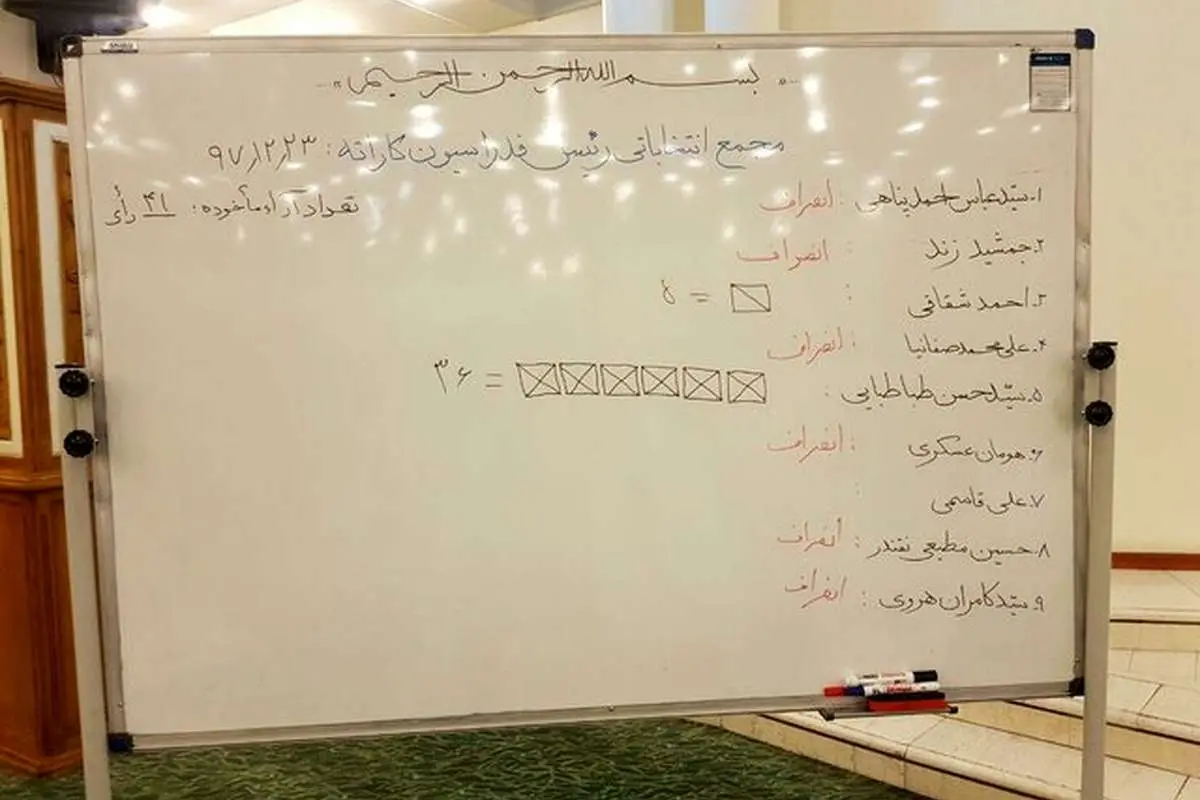 بسم الله الرحمن الرحیم
مجمع انتخاباتی رئیس فدراسیون کاراته : ۹۷٫۱۲٫۲۳
تعداد آراء مأخوذه : ۴۱ رأی
۱. سیّد عباس احمد پناهی : انصراف
۲. جمشید زند : انصراف
۳. احمد شقاقی : = ۵
۴. علی محمد صفانیا : انصراف
۵. سیّد حسن طباطبایی : = ۳۶
۶. هومان عسکری : انصراف
۷. علی قاسمی :
۸. حسین مطیعی نقندر : انصراف
۹. سیّد کامران هروی : انصراف